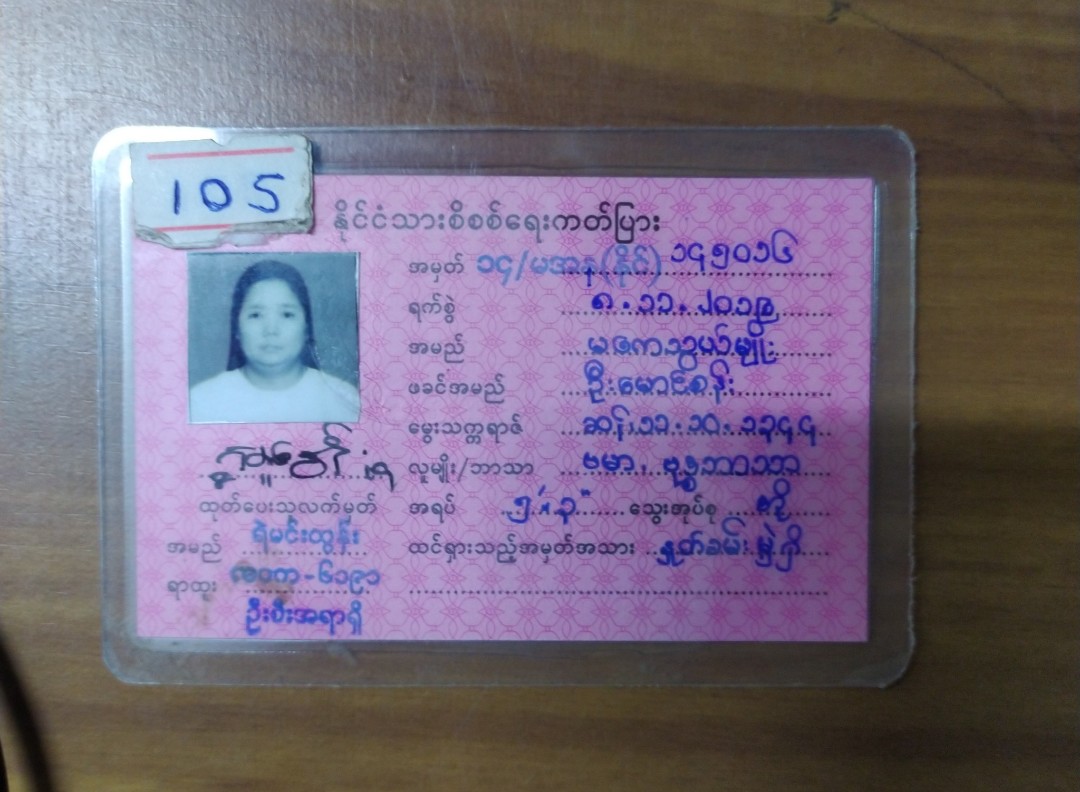 105
နိုင်ငံသားစိစစ်ရေးကတ်ပြား
အမှတ် ၁၄/မအန(နိုင်) ၁၄၅၀၁၆
ရက်စွဲ ၈.၁၁.၂၀၁၉
အမည် မဇကသွယ်မျိုး
ဖခင်အမည် ဦးမောင်စန်း
မွေးသက္ကရာဇ် ၁၁.၁၀.၁၃၄၄
လူမျိုး/ဘာသာ ဗမာ, ဗုဒ္ဓဘာသာ
အရပ် ၅'၃" သွေးအုပ်စု အို
ထင်ရှားသည့်အမှတ်အသား
ထုတ်ပေးသူလက်မှတ်
အမည် ရဲမင်းထွန်း
ရာထူး လဝက-၆၁၉၁
ဦးစီးအရာရှိ